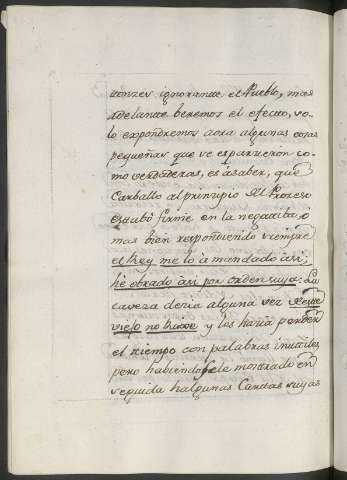 tonzes ignorante el Pueblo, mas
adelante beremos el efecto, so-
lo expondremos aora algunas cosas
pequeñas que se esparzieron co-
mo verdaderas, es a saber, que
Carballo al prinzipio del Prozeso
estubo firme en la negatiba, ó
mas bien respondiendo siempre
el Rey me lo à mandado asi;
hè obrado asi por orden suya: La
caveza dezia alguna vez
viejo no and y les hazia perder
el tiempo con palabras inutiles,
pero habiendosele mostrado en
seguida halgunas Cartas suyas